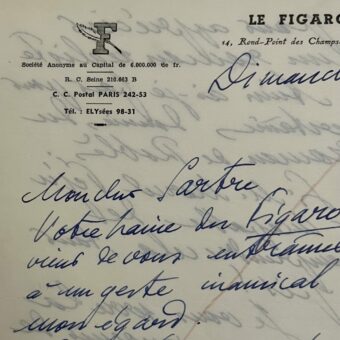 F
LE FIGARO
14, Rond-Point des Champs
Société Anonyme au Capital de 6.000.000 de fr.
R. C. Seine 210.663 B
C. C. Postal PARIS 242-53
Tél. : ELYsées 98-31
Dimanc
Monsieur Sartre
Votre haine du Figaro
vient de vous entraîner
à un geste inamical
mon égard.